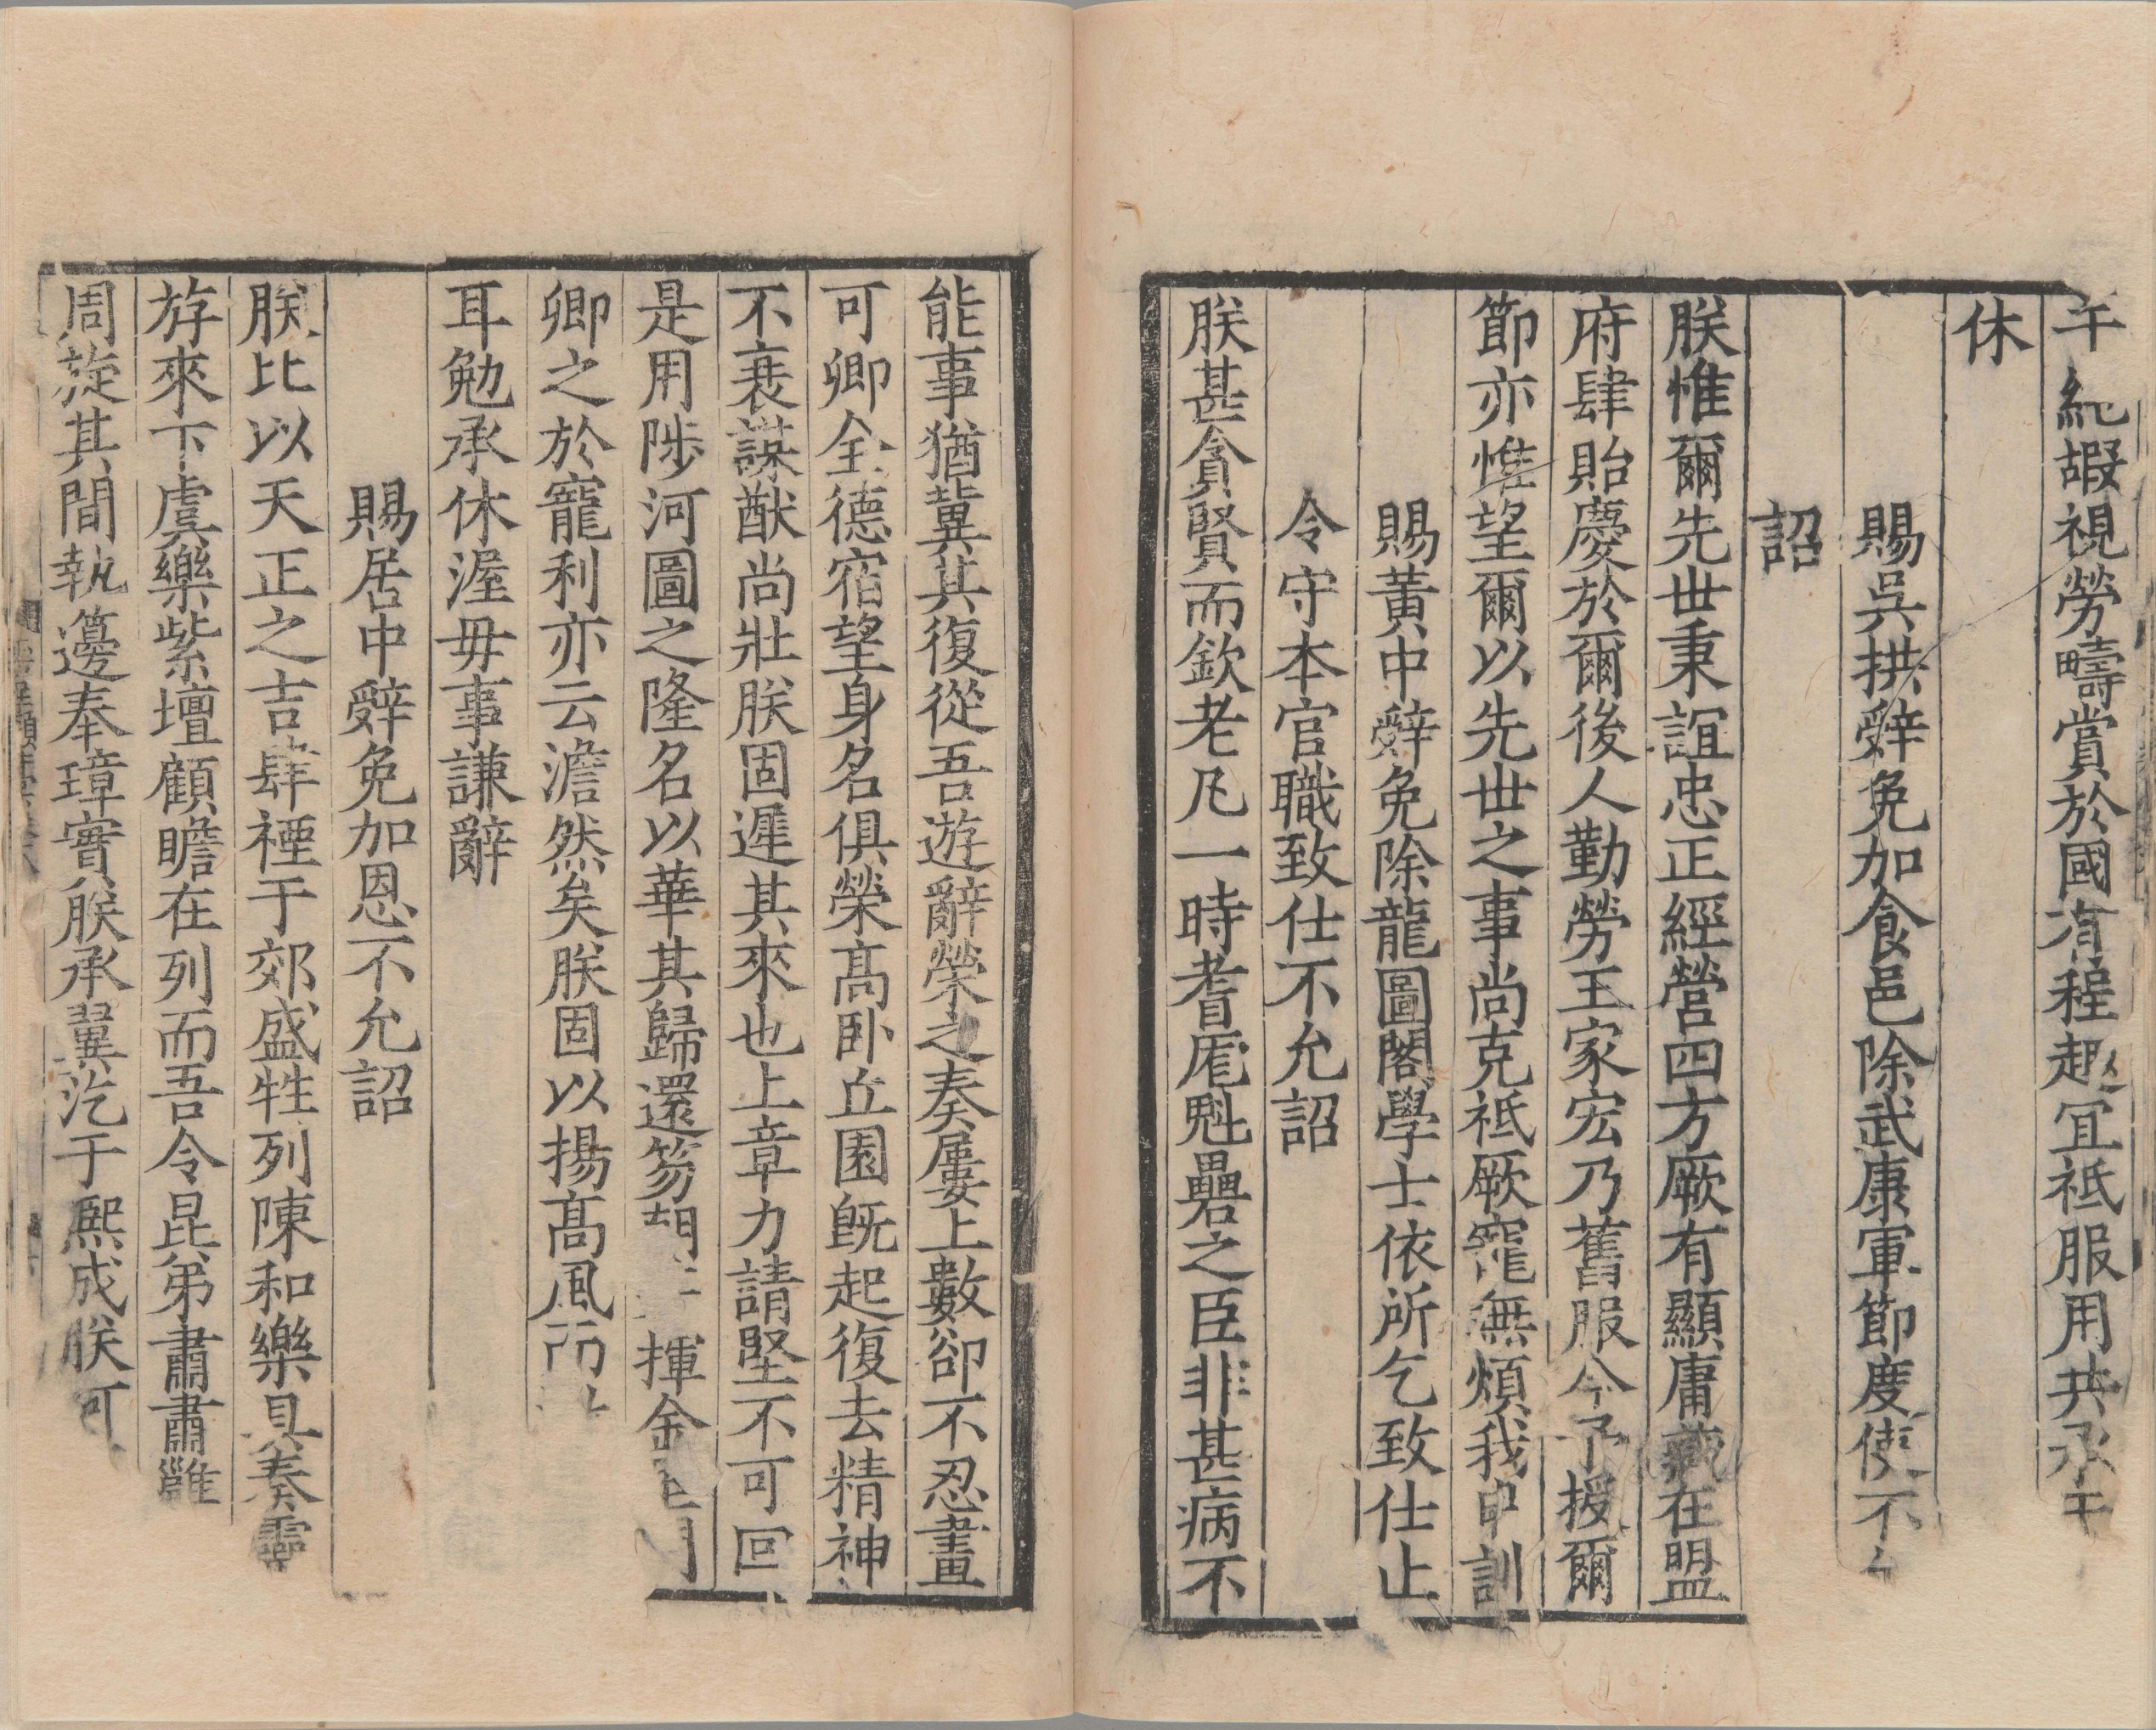 午純嘏視勞疇賞於國有程趣冝祗服用共承
休
賜吳拱辤免加食邑除武康軍節度使不
詔
朕惟爾先世秉誼忠正經營四方厥有顯庸藏在盟
府肆貽慶於爾後人勤勞王家宏乃舊服今予授爾
節亦惟望爾以先世之事尚克祗厥寵無煩我申訓
賜黃中辤免除龍圖閣學士依所乞致仕止
令守本官職致仕不允詔
朕甚貪賢而欽老凡一時耆厖魁礨之臣非甚病不
能事猶冀其復從吾遊辭榮之奏屢上數卻不忍畫
可卿全德宿望身名俱榮髙卧丘園旣起復去精神
不衰謀猷尚壯朕固遲其來也上章力請堅不可回
是用陟河圖之隆名以華其歸還笏揮金
卿之於寵利亦云澹然矣朕固以揚髙風
耳勉承休渥毋事謙辭
賜居中辤免加恩不允詔
朕比以天正之吉肆禋于郊盛牲列陳和樂具奏靈
斿來下虞樂紫壇顧瞻在列而吾令昆弟肅肅雝
周旋其間執籩奉璋實朕承翼汔于熙成朕可